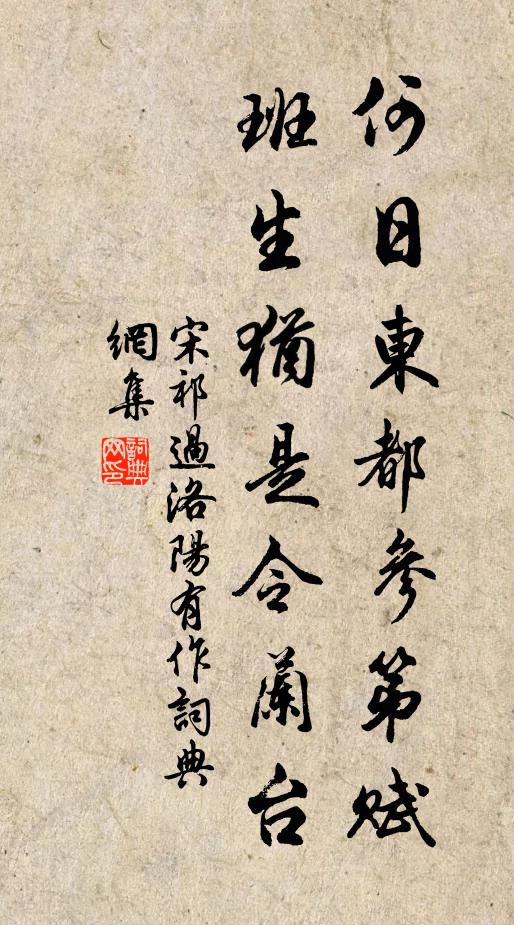 何日東都參第賦
班生猶是令蘭台
宋祁過洛陽有作詞典
網集
詞典網印